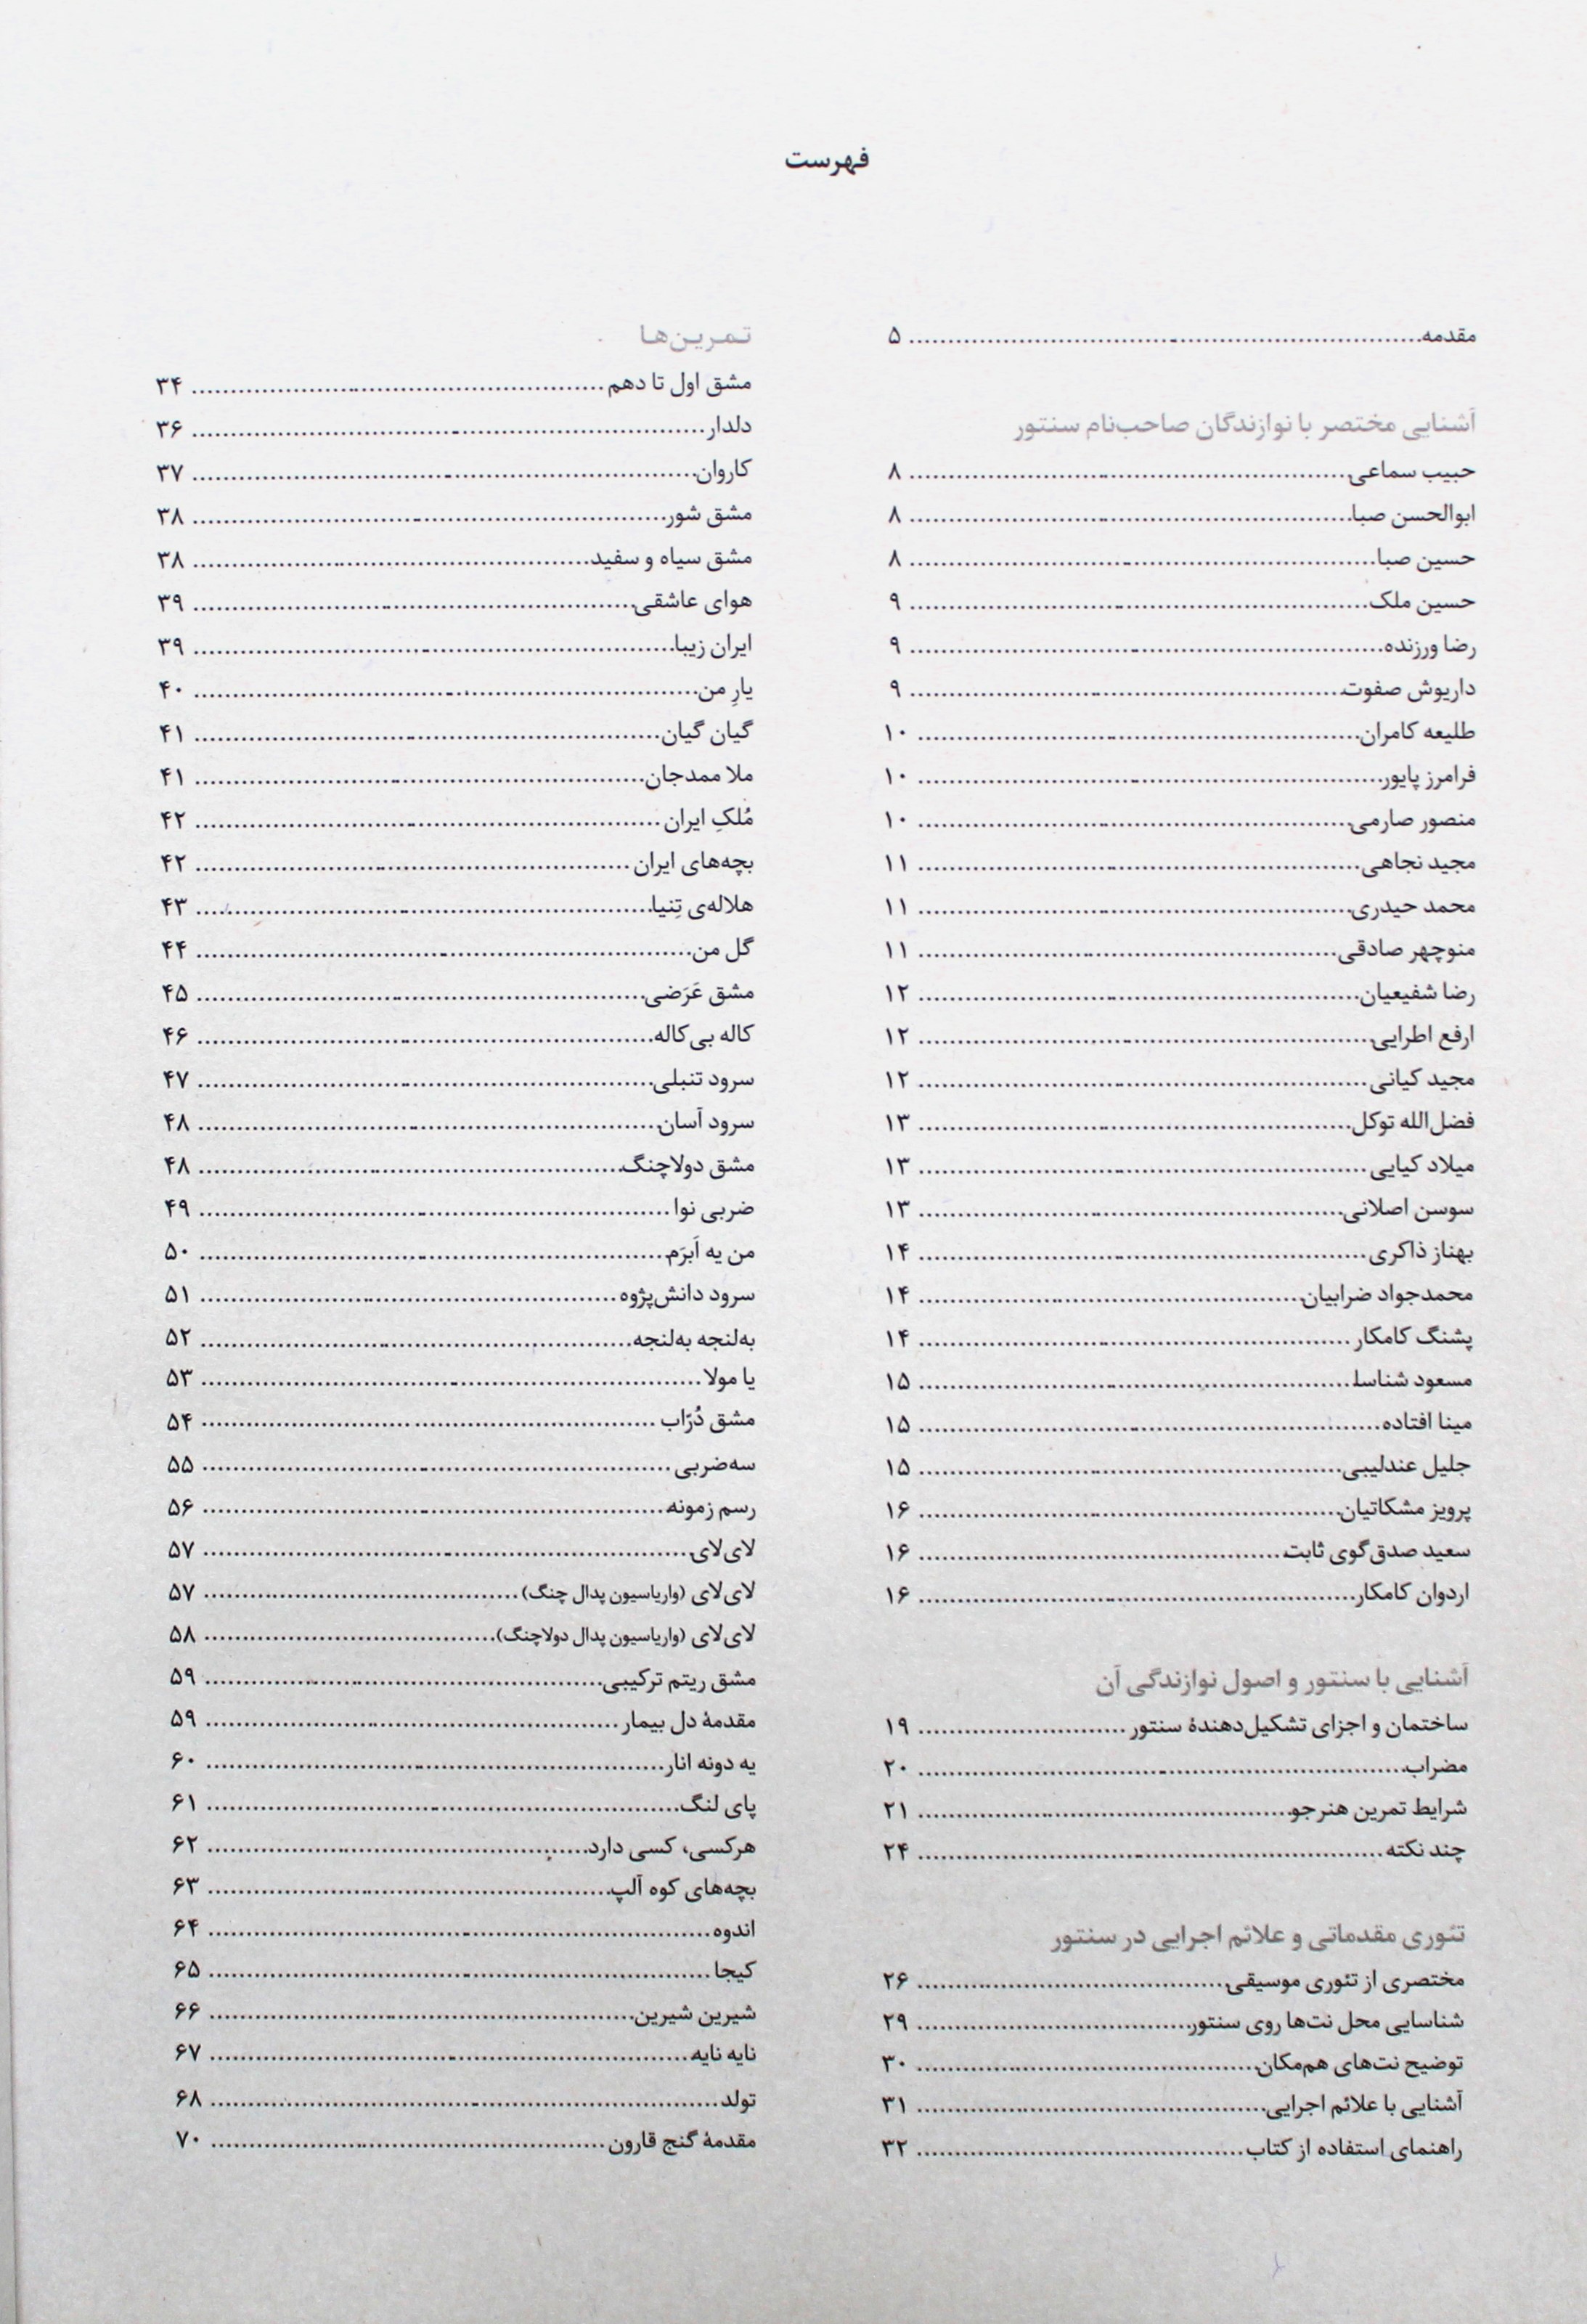 فهرست
مقدمه ........ ۵
آشنایی مختصر با نوازندگان صاحب‌نام سنتور
حبیب سماعی ........ ۸
ابوالحسن صبا ........ ۸
حسین صبا ........ ۸
حسین ملک ........ ۹
رضا ورزنده ........ ۹
داریوش صفوت ........ ۹
طلیعه کامران ........ ۱۰
فرامرز پایور ........ ۱۰
منصور صارمی ........ ۱۰
مجید نجاهی ........ ۱۱
محمد حیدری ........ ۱۱
منوچهر صادقی ........ ۱۱
رضا شفیعیان ........ ۱۲
ارفع اطرایی ........ ۱۲
مجید کیانی ........ ۱۲
فضل‌الله توکل ........ ۱۳
میلاد کیایی ........ ۱۳
سوسن اصلانی ........ ۱۳
بهناز ذاکری ........ ۱۴
محمدجواد ضرابیان ........ ۱۴
پشنگ کامکار ........ ۱۴
مسعود شناسا ........ ۱۵
مینا افتاده ........ ۱۵
جلیل عندلیبی ........ ۱۵
پرویز مشکاتیان ........ ۱۶
سعید صدق‌گوی ثابت ........ ۱۶
اردوان کامکار ........ ۱۶
آشنایی با سنتور و اصول نوازندگی آن
ساختمان و اجزای تشکیل‌دهندهٔ سنتور ........ ۱۹
مضراب ........ ۲۰
شرایط تمرین هنرجو ........ ۲۱
چند نکته ........ ۲۴
تئوری مقدماتی و علائم اجرایی در سنتور
مختصری از تئوری موسیقی ........ ۲۶
شناسایی محل نت‌ها روی سنتور ........ ۲۹
توضیح نت‌های هم‌مکان ........ ۳۰
آشنایی با علائم اجرایی ........ ۳۱
راهنمای استفاده از کتاب ........ ۳۲
تمرین‌ها
مشق اول تا دهم ........ ۳۴
دلدار ........ ۳۶
کاروان ........ ۳۷
مشق شور ........ ۳۸
مشق سیاه و سفید ........ ۳۸
هوای عاشقی ........ ۳۹
ایران زیبا ........ ۳۹
یارِ من ........ ۴۰
گیان گیان ........ ۴۱
ملا ممدجان ........ ۴۱
مُلکِ ایران ........ ۴۲
بچه‌های ایران ........ ۴۲
هلاله‌ی تِنیا ........ ۴۳
گل من ........ ۴۴
مشق عَرَضی ........ ۴۵
کاله بی‌کاله ........ ۴۶
سرود تنبلی ........ ۴۷
سرود آسان ........ ۴۸
مشق دولاچنگ ........ ۴۸
ضربی نوا ........ ۴۹
من یه اَبرَم ........ ۵۰
سرود دانش‌پژوه ........ ۵۱
به‌لنجه به‌لنجه ........ ۵۲
یا مولا ........ ۵۳
مشق دُرّاب ........ ۵۴
سه‌ضربی ........ ۵۵
رسم زمونه ........ ۵۶
لای‌لای ........ ۵۷
لای‌لای (واریاسیون پدال چنگ) ........ ۵۷
لای‌لای (واریاسیون پدال دولاچنگ) ........ ۵۸
مشق ریتم ترکیبی ........ ۵۹
مقدمهٔ دل بیمار ........ ۵۹
یه دونه انار ........ ۶۰
پای لنگ ........ ۶۱
هرکسی، کسی دارد ........ ۶۲
بچه‌های کوه آلپ ........ ۶۳
اندوه ........ ۶۴
کیجا ........ ۶۵
شیرین شیرین ........ ۶۶
نایه نایه ........ ۶۷
تولد ........ ۶۸
مقدمهٔ گنج قارون ........ ۷۰